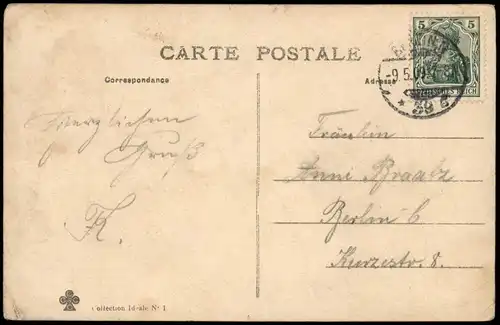 CARTE POSTALE
Correspondance
Adresse
5 5
BERLIN
-9.5.0
DEUTSCHES REICH
* 39 a
Herzlichen
Gruß
K.
Fräulein
Anni Braatz
Berlin C
Kurzestr. 8.
Collection Idéale No 1